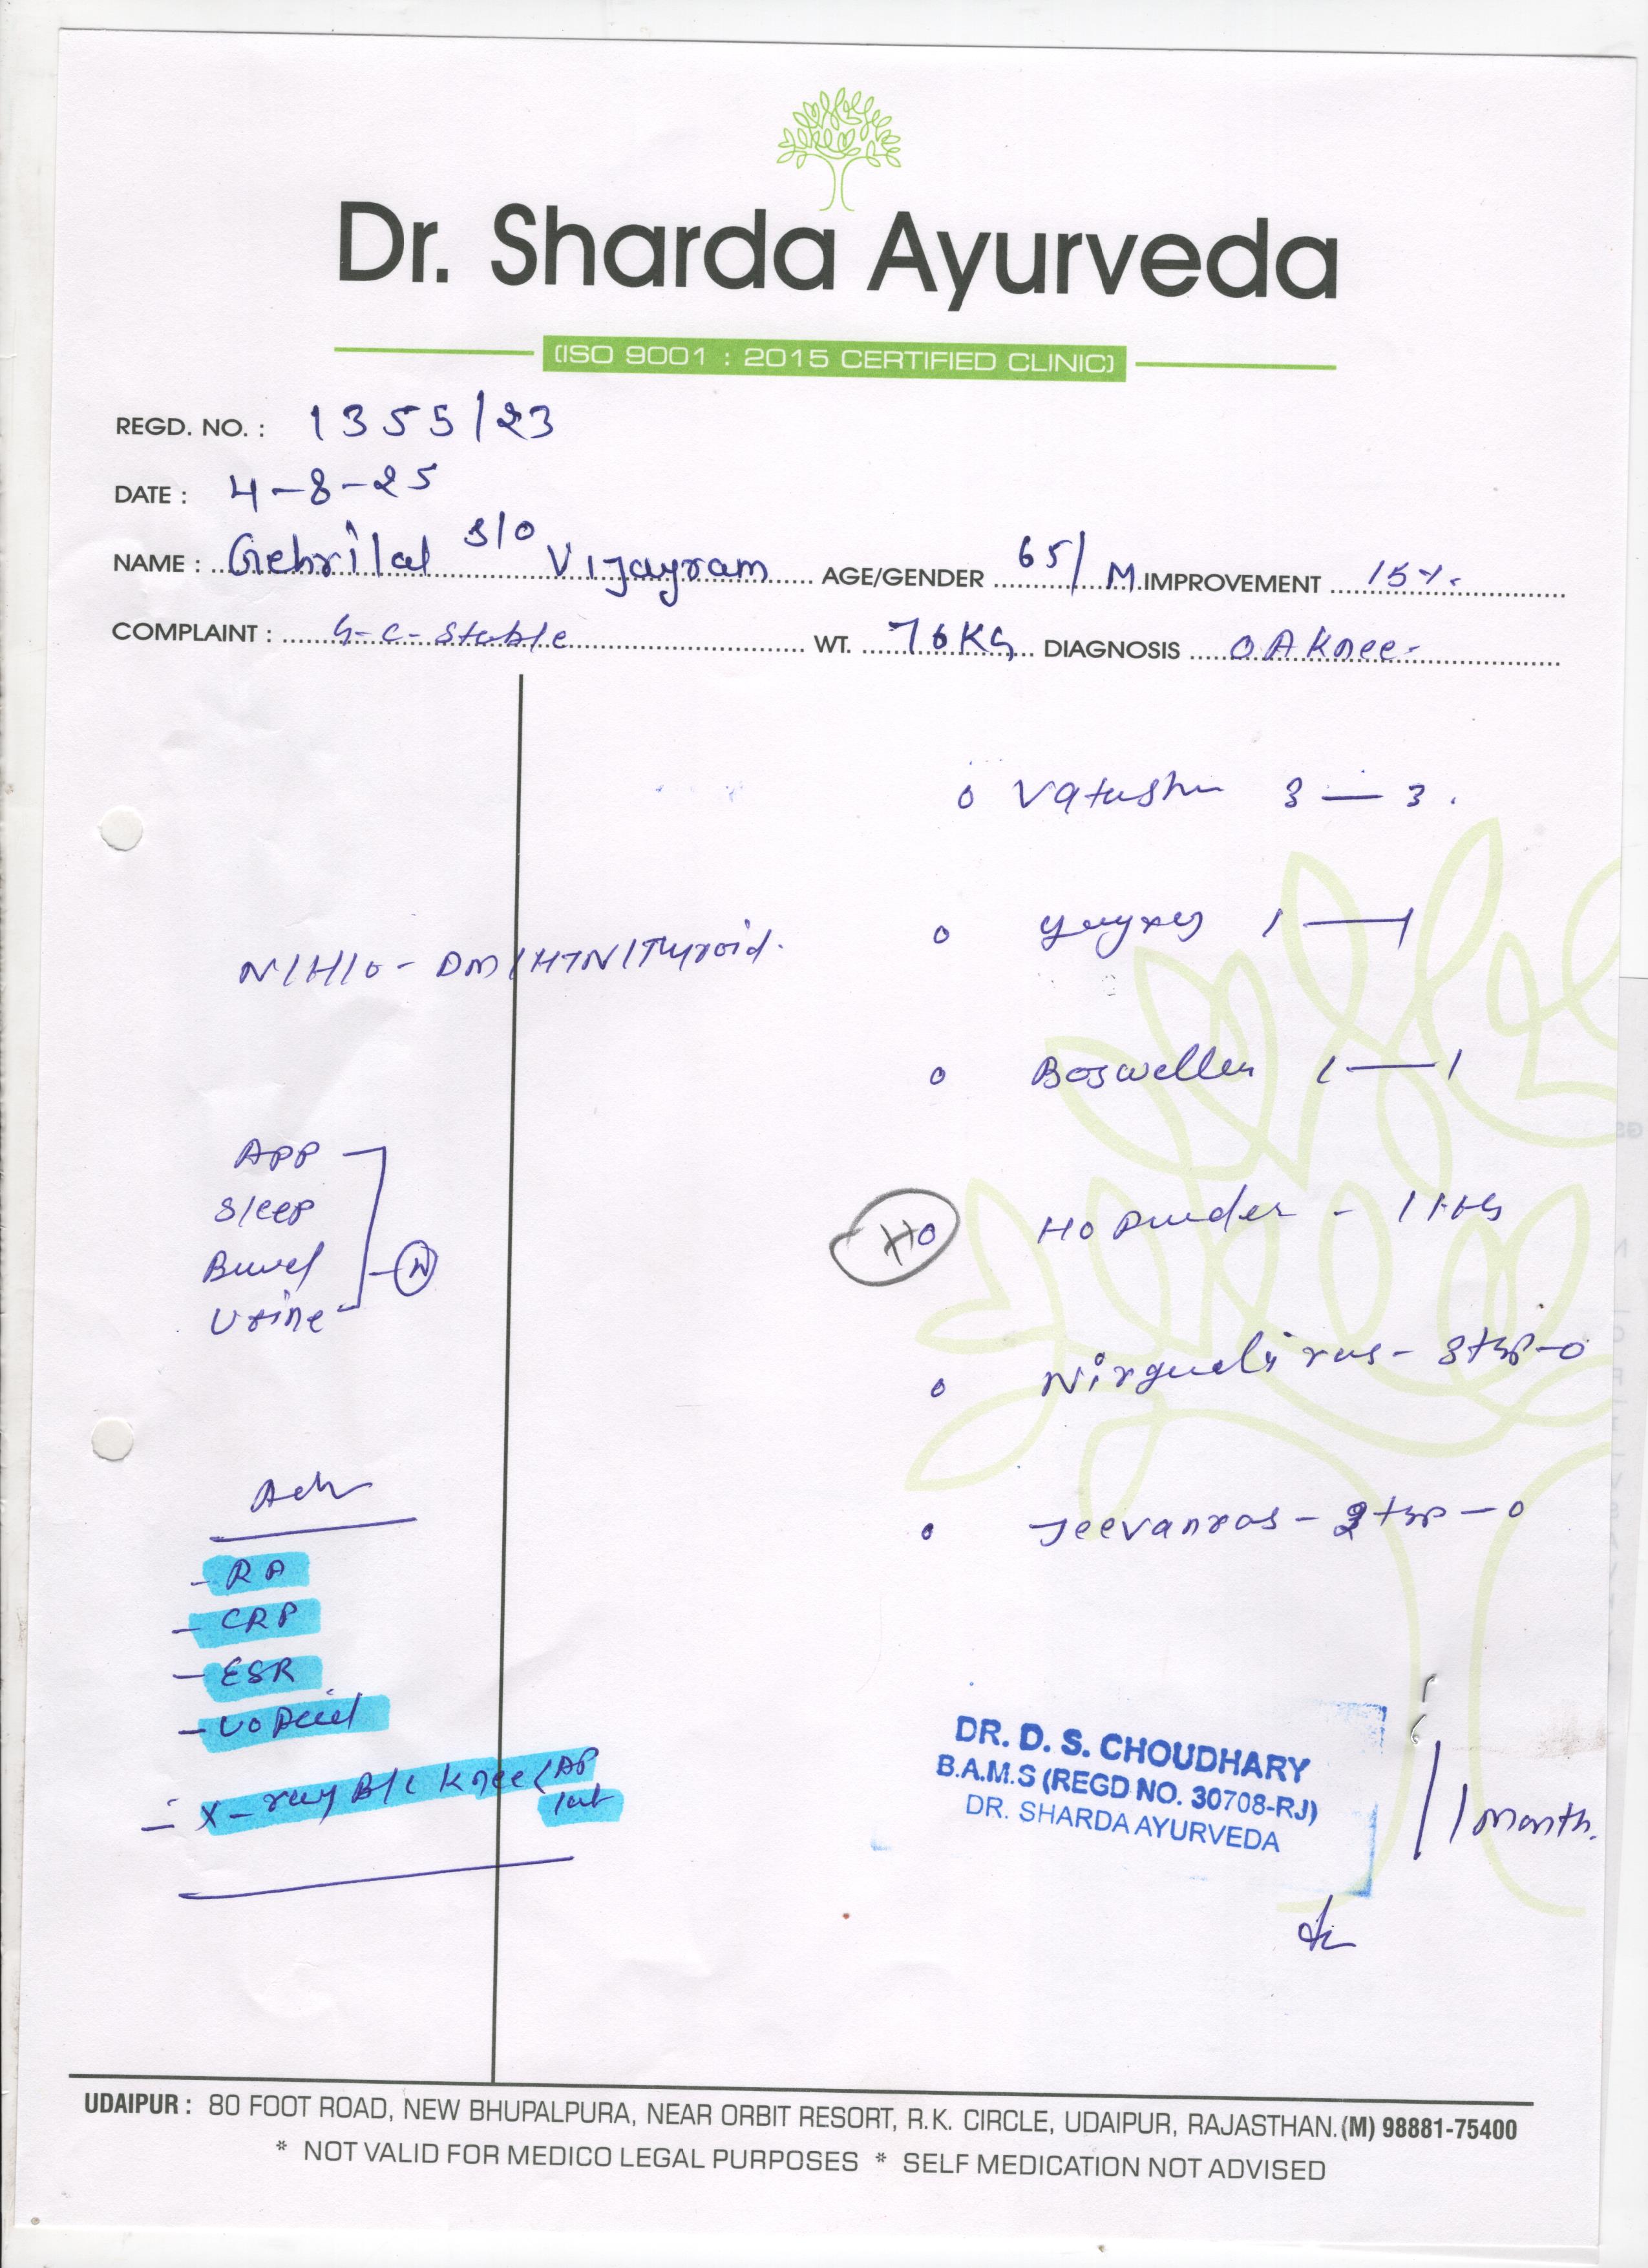 Dr. Sharda Ayurveda
(ISO 9001 : 2015 CERTIFIED CLINIC)
REGD. NO. : 1355/23
DATE : 4-8-25
NAME : Gehrilal S/O Vijayram AGE/GENDER 65/M IMPROVEMENT 15%
COMPLAINT : G-C-Stable WT. 76KG DIAGNOSIS OA Knee-
3 — 3.
N/H/O- DM/HTN/Thyroid.
1 — 1
1 — 1
APP
Sleep
Urine
N
HO
HO
ras- 3tsp-0
Jeevanras- tsp-0
Adv
- RA
- CRP
- ESR
- X-ray B/L Knee AP
Lat
DR. D. S. CHOUDHARY
B.A.M.S (REGD NO. 30708-RJ)
DR. SHARDA AYURVEDA
1 Month.
UDAIPUR : 80 FOOT ROAD, NEW BHUPALPURA, NEAR ORBIT RESORT, R.K. CIRCLE, UDAIPUR, RAJASTHAN. (M) 98881-75400
* NOT VALID FOR MEDICO LEGAL PURPOSES * SELF MEDICATION NOT ADVISED